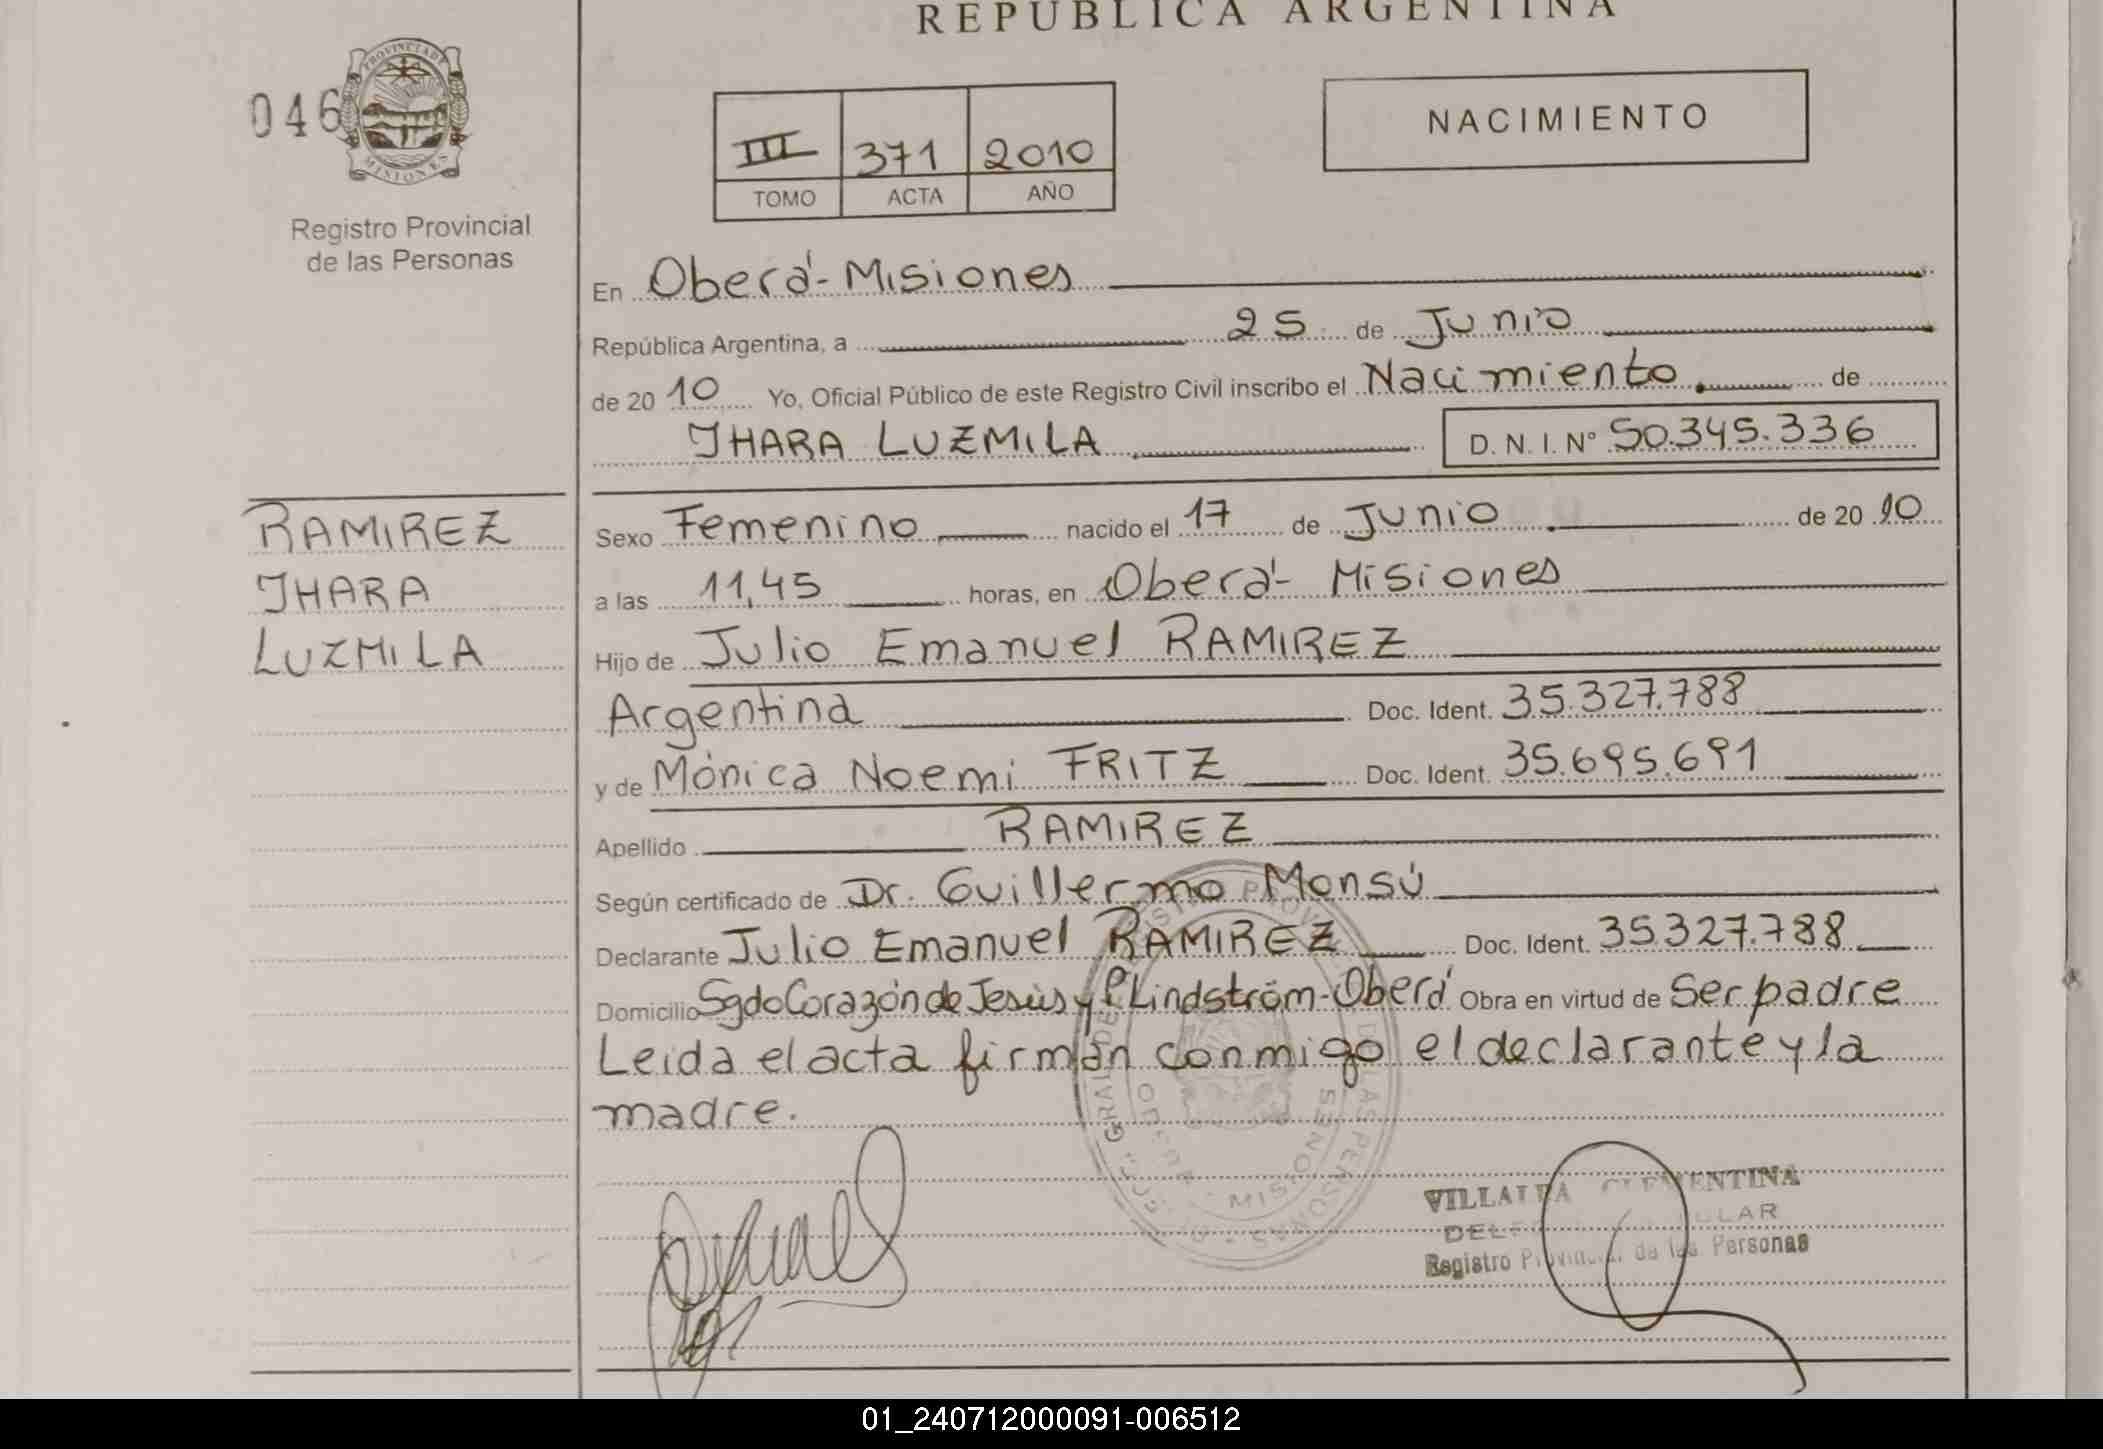 REPUBLICA ARGENTINA
046
PROVINCIA DE
MISIONES
Registro Provincial
de las Personas
III 371 2010
TOMO ACTA AÑO
NACIMIENTO
En Oberá-Misiones
República Argentina, a 25 de Junio
de 20 10 Yo, Oficial Público de este Registro Civil inscribo el Nacimiento. de
JHARA LUZMILA D. N. I. N° 50.345.336
RAMIREZ
JHARA
LUZMILA
Sexo Femenino nacido el 17 de Junio de 20 10
a las 11,45 horas, en Oberá- Misiones
Hijo de Julio Emanuel RAMIREZ
Argentina Doc. Ident. 35.327.788
y de Mónica Noemi FRITZ Doc. Ident. 35.695.691
Apellido RAMIREZ
Según certificado de Dr. Guillermo Monsú
Declarante Julio Emanuel RAMIREZ Doc. Ident. 35.327.788
Domicilio Sgdo Corazón de Jesús y P. Lindström-Oberá Obra en virtud de Ser padre
Leida el acta firman conmigo el declarante y la
madre.
MISIONES
VILLALBA CLEMENTINA
Registro Provincial de las Personas
01_240712000091-006512